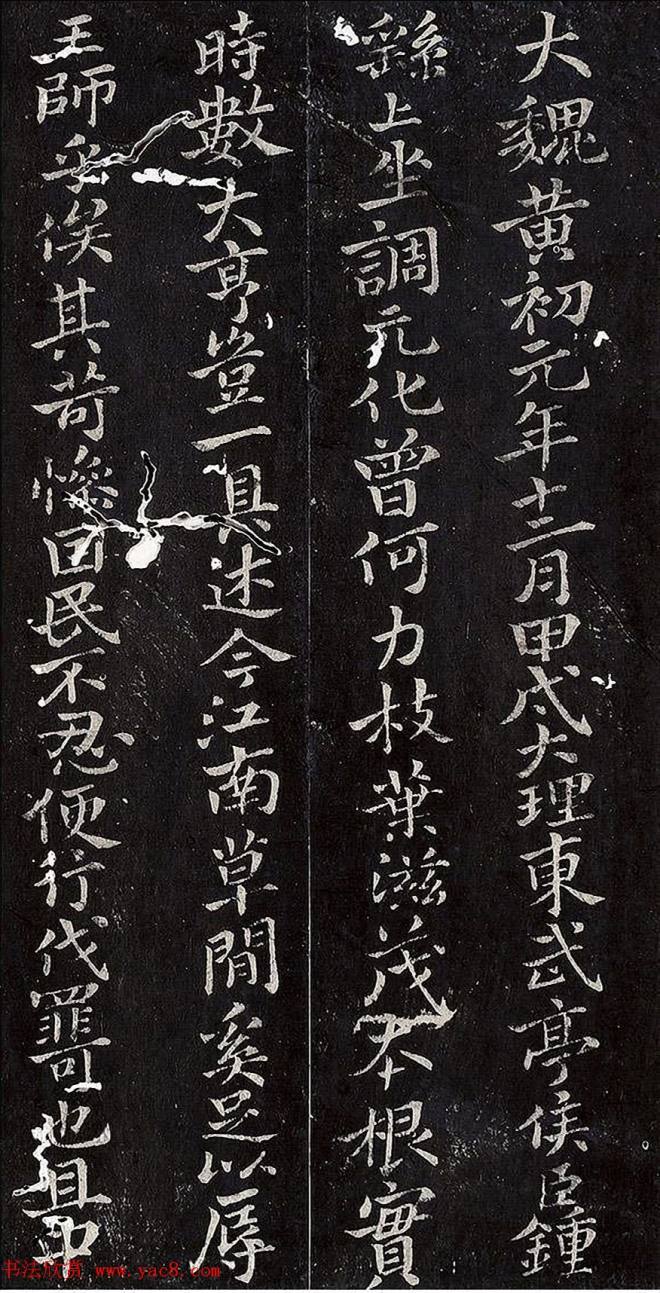 大魏黄初元年十二月甲戌大理東武亭侯臣鍾
繇上坐調元化曾何力枝葉滋茂本根實
時數大亨豈一具述今江南草間奚足以辱
王師乎俟其苛慘困民不忍便行伐罪可也且
书法欣赏 www.yac8.com